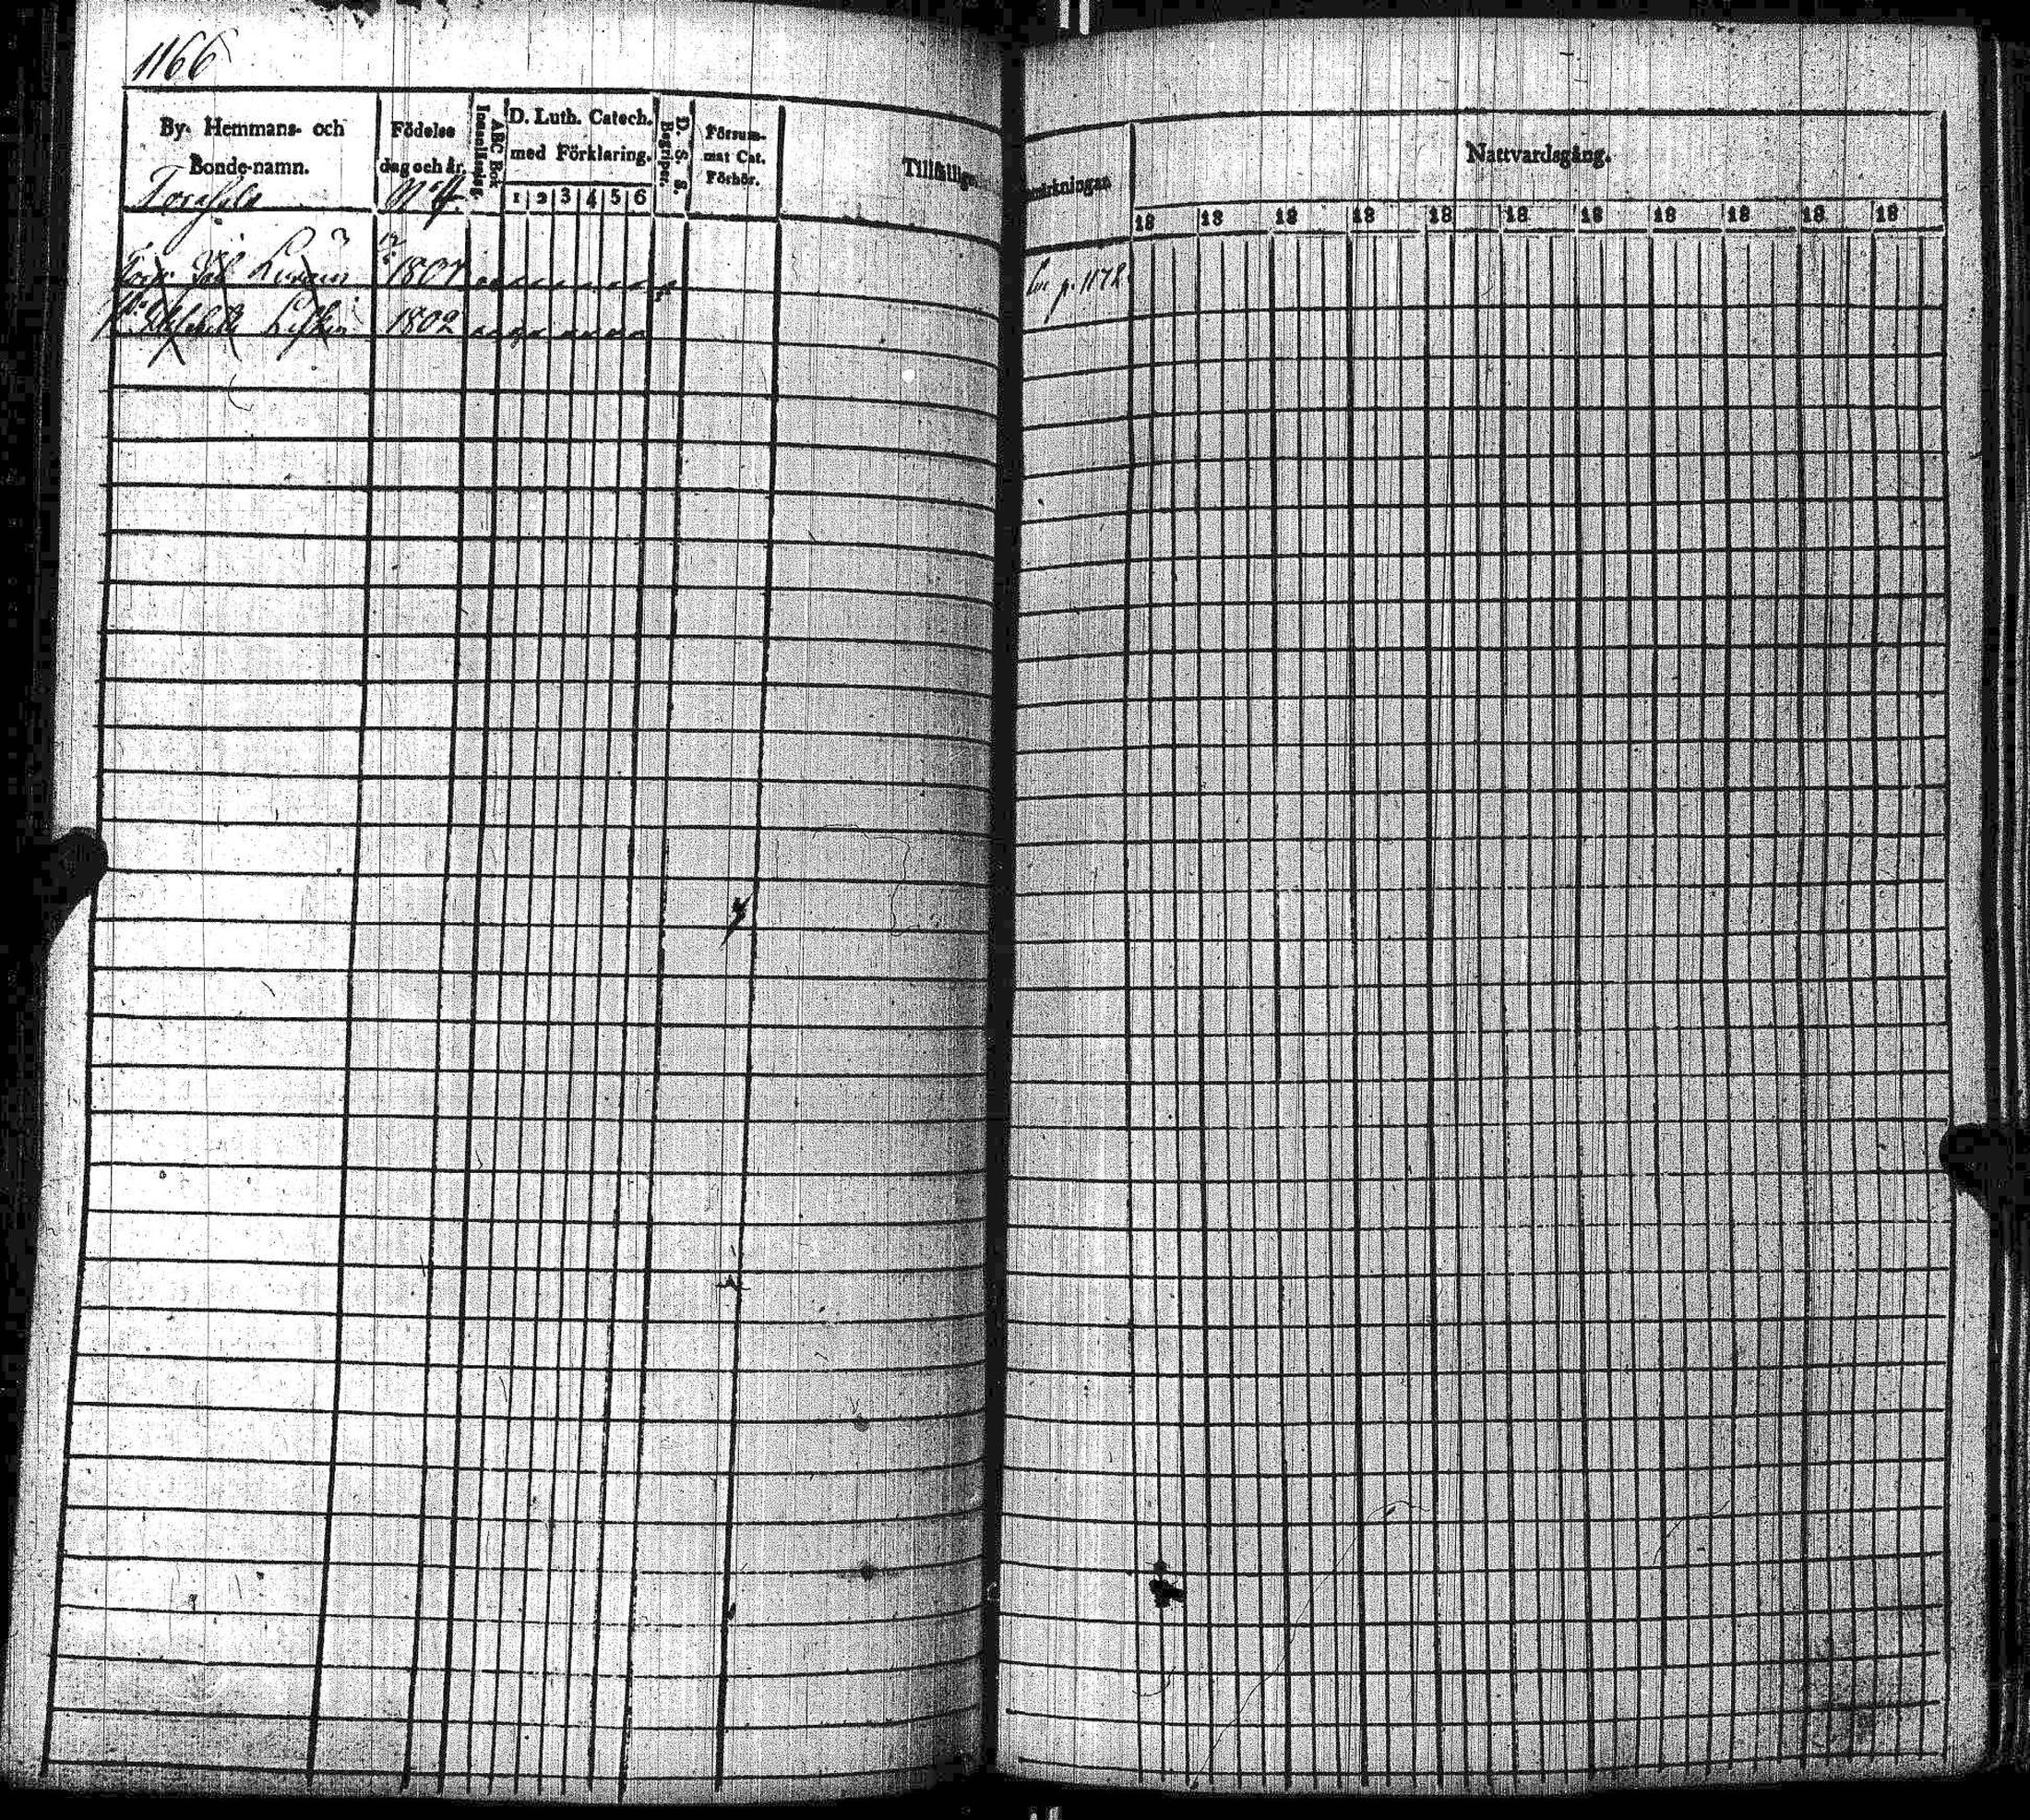 1166
By- Hemmans- och
Bonde-namn.
Födelse
dag och år.
ABC Bok
Innanläsning.
D. Luth. Catech.
med Förklaring.
1 2 3 4 5 6
D. S. S.
Begriper.
Försum-
mat Cat.
Förhör.
Tillfälliga
Anmärkningar.
Nattvardsgång.
18 18 18 18 18 18 18 18 18 18 18
N:o 4.
1807
1802
p. 1172